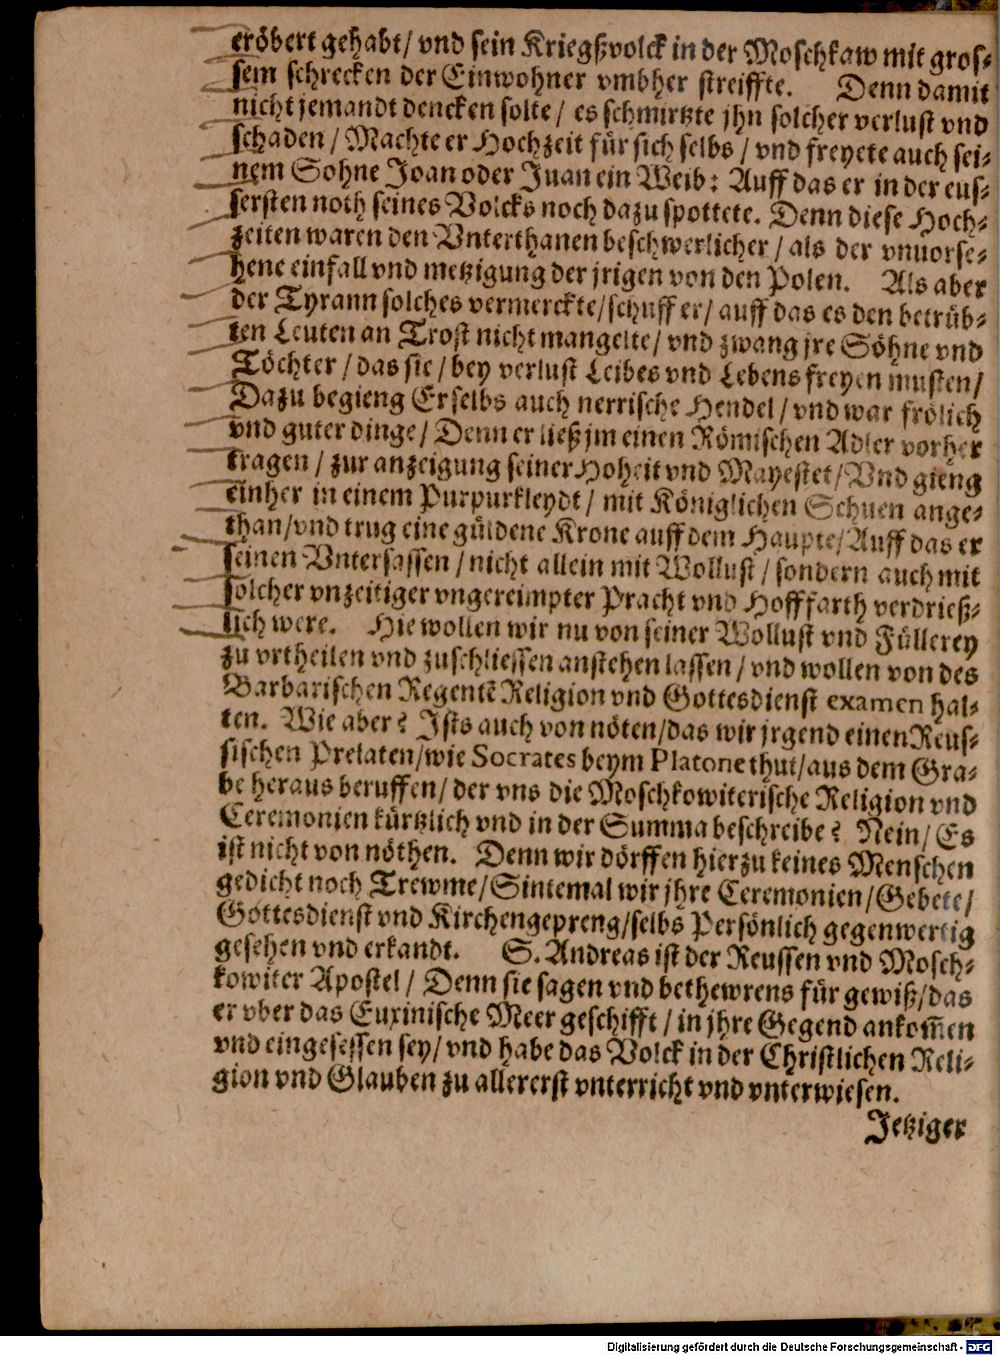 eröbert gehabt/ vnd sein Kriegßvolck in der Moschkaw mit gros-
sem schrecken der Einwohner vmbher streiffte. Denn damit
nicht jemandt dencken solte/ es schmirtzte jhn solcher verlust vnd
schaden/ Machte er Hochzeit für sich selbs/ vnd freyete auch sei-
nem Sohne Joan oder Juan ein Weib: Auff das er in der eus-
sersten noth seines Volcks noch dazu spottete. Denn diese Hoch-
zeiten waren den Vnterthanen beschwerlicher/ als der vnuorse-
hene einfall vnd metzigung der jrigen von den Polen. Als aber
der Tyrann solches vermerckte/schuff er/ auff das es den betrüb-
ten Leuten an Trost nicht mangelte/ vnd zwang jre Söhne vnd
Töchter/ das sie/ bey verlust Leibes vnd Lebens freyen musten/
Dazu begieng Er selbs auch nerrische Hendel/ vnd war frölich
vnd guter dinge/ Denn er ließ jm einen Römischen Adler vorher
tragen/ zur anzeigung seiner Hoheit vnd Mayestet/ Vnd gieng
einher in einem Purpurkleydt/ mit Königlichen Schuen ange-
than/vnd trug eine güldene Krone auff dem Haupte/ Auff das er
seinen Vntersassen/ nicht allein mit Wollust/ sondern auch mit
solcher vnzeitiger vngereimpter Pracht vnd Hofffarth verdrieß-
lich were. Hie wollen wir nu von seiner Wollust vnd Füllerey
zu vrtheilen vnd zuschliessen anstehen lassen/ vnd wollen von des
Barbarischen Regentē Religion vnd Gottesdienst examen hal-
ten. Wie aber? Ists auch von nöten/das wir jrgend einen Reus-
sischen Prelaten/wie Socrates beym Platone thut/aus dem Gra-
be heraus beruffen/ der vns die Moschkowiterische Religion vnd
Ceremonien kürtzlich vnd in der Summa beschreibe? Nein/ Es
ist nicht von nöthen. Denn wir dörffen hierzu keines Menschen
gedicht noch Trewme/Sintemal wir jhre Ceremonien/Gebete/
Gottesdienst vnd Kirchengepreng/selbs Persönlich gegenwertig
gesehen vnd erkandt. S. Andreas ist der Reussen vnd Mosch-
kowiter Apostel/ Denn sie sagen vnd bethewrens für gewiß/das
er vber das Euxinische Meer geschifft/ in jhre Gegend ankom̄en
vnd eingesessen sey/ vnd habe das Volck in der Christlichen Reli-
gion vnd Glauben zu allererst vnterricht vnd vnterwiesen.
Jetziger
Digitalisierung gefördert durch die Deutsche Forschungsgemeinschaft - DFG